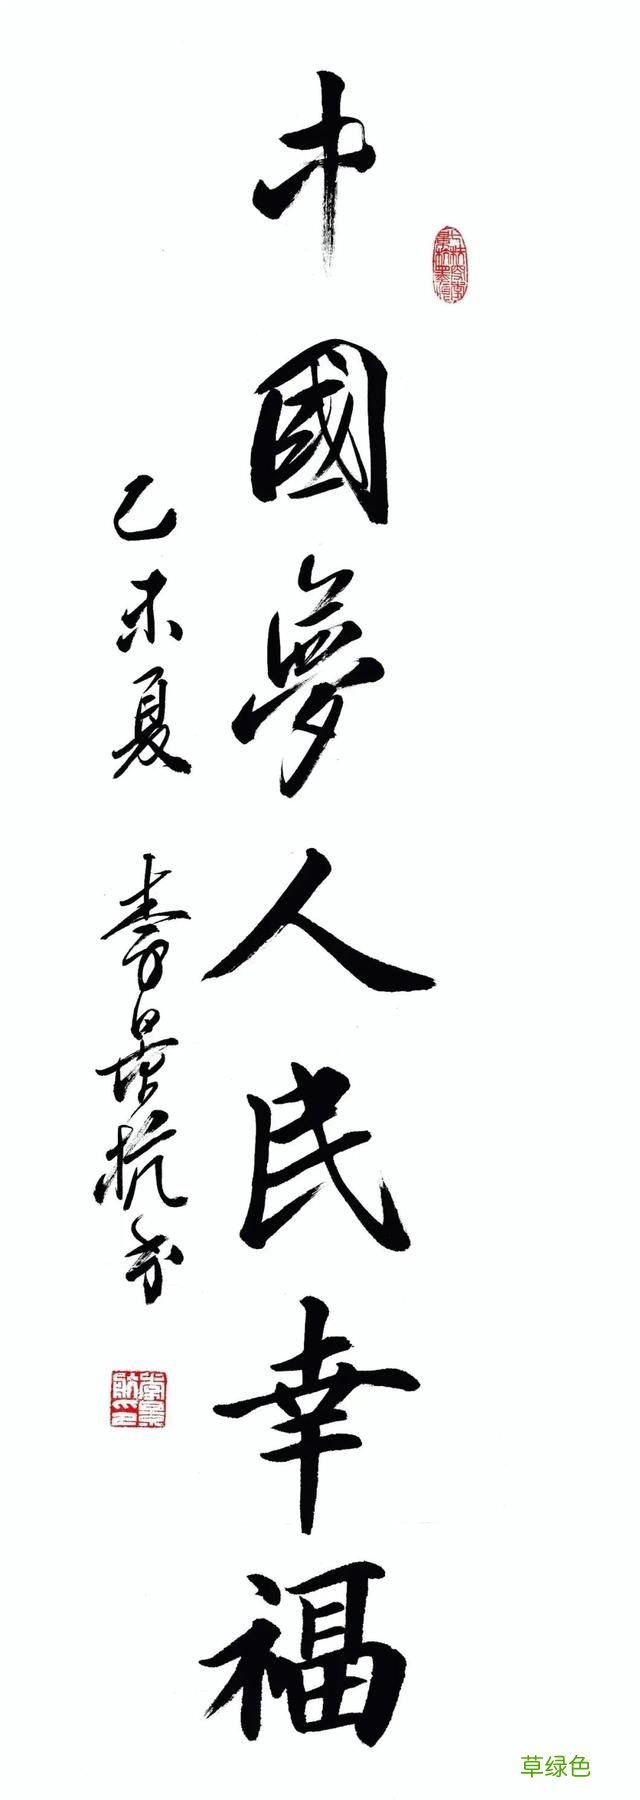 中國夢人民幸福
乙未夏 李景杭书
草绿色